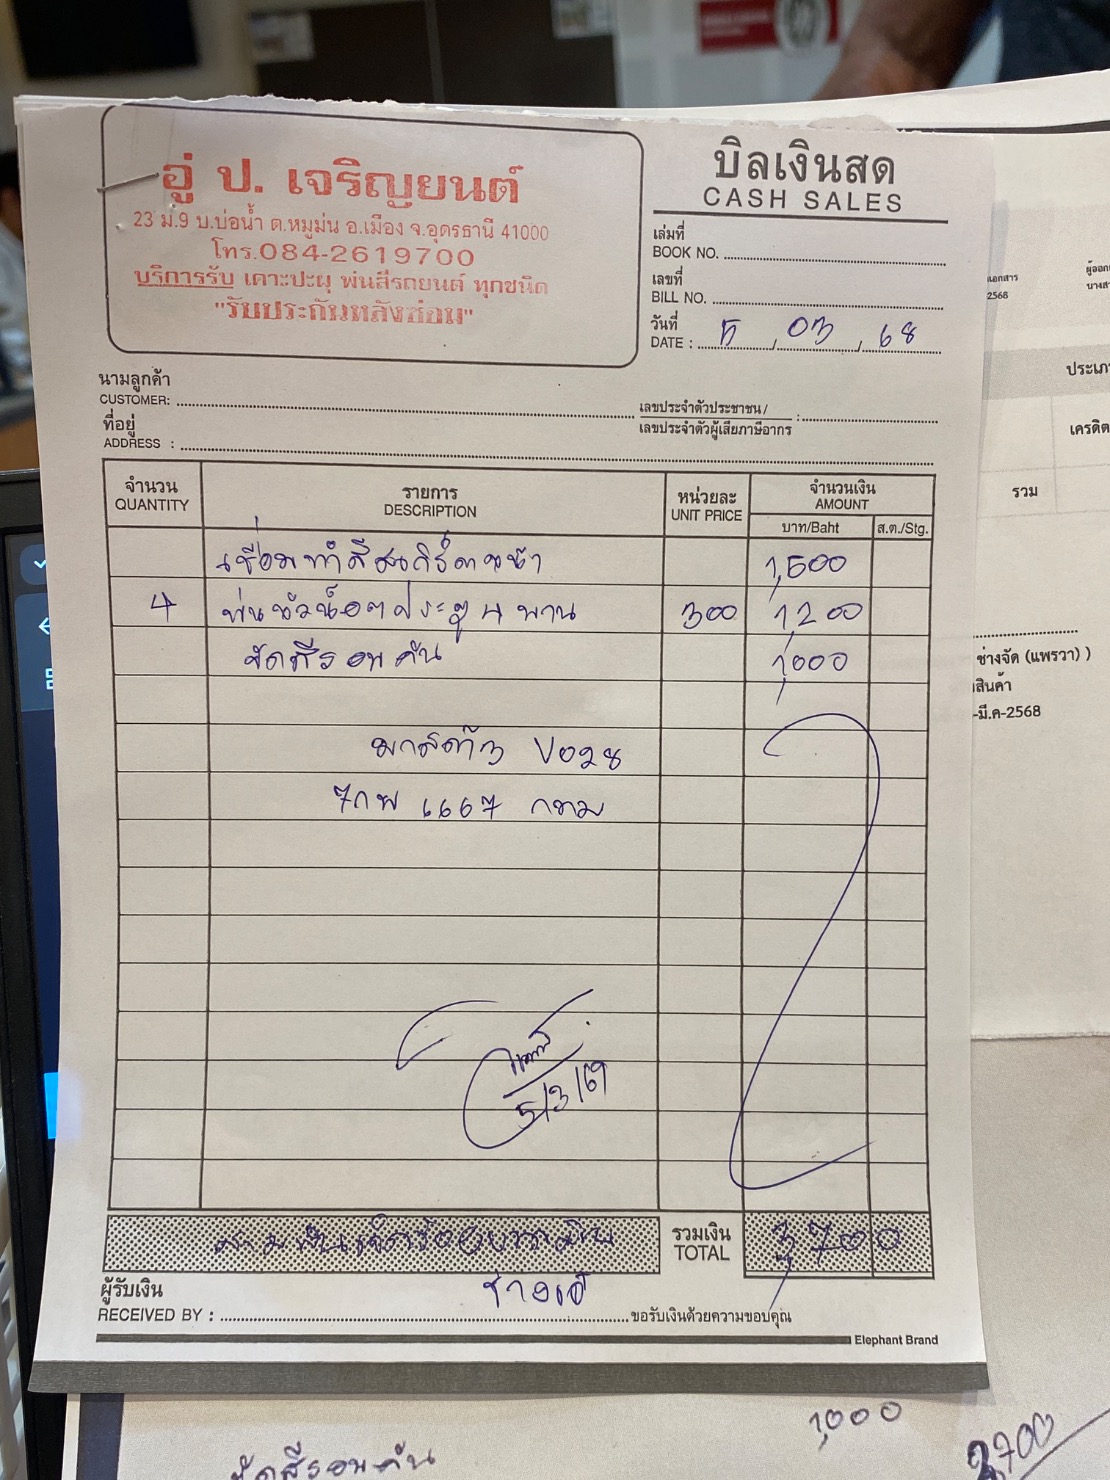 อู่ ป. เจริญยนต์
23 ม.9 บ.บ่อน้ำ ต.หมูม่น อ.เมือง จ.อุดรธานี 41000
โทร.084-2619700
บริการรับ เคาะปะผุ พ่นสีรถยนต์ ทุกชนิด
"รับประกันหลังซ่อม"
บิลเงินสด
CASH SALES
เล่มที่
BOOK NO.
เลขที่
BILL NO.
วันที่
DATE : 5 / 03 / 68
นามลูกค้า
CUSTOMER:
เลขประจำตัวประชาชน/
เลขประจำตัวผู้เสียภาษีอากร :
ที่อยู่
ADDRESS :
จำนวน รายการ หน่วยละ จำนวนเงิน
QUANTITY DESCRIPTION UNIT PRICE AMOUNT
บาท/Baht ส.ต./Stg.
เชื่อมทำสี หน้า 1,500
4 พ่นหัวน็อตประตู 4 บาน 300 1,200
ขัดสีรอบคัน 1,000
มาสด้า3 V028
7กพ 6667 กทม
5/3/69
สามพันเจ็ดร้อยบาทถ้วน รวมเงิน 3,700
TOTAL
ผู้รับเงิน ช่างเอ๋
RECEIVED BY : ขอรับเงินด้วยความขอบคุณ
Elephant Brand
เอกสาร
2568
ผู้ออก
นางสา
ประเภท
เครดิต
รวม
ช่างจัด (แพรวา) )
สินค้า
-มี.ค-2568
1,000
ขัดสีรอบคัน
3,700